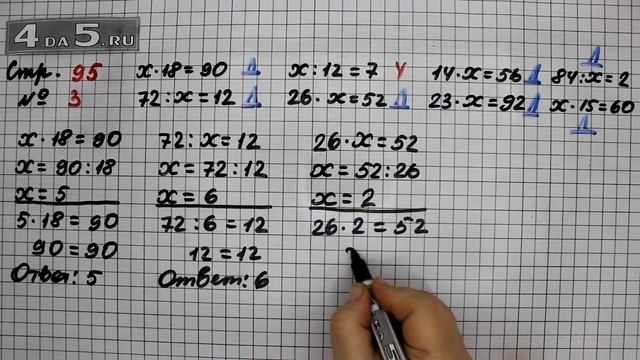 4DA5.RU
Стр. 95
№ 3
x·18=90 Д
72:x=12 Д
x:12=7 У
26·x=52 Д
14·x=56 Д
23·x=92 Д
84:x=2 Д
x·15=60 Д
x·18=90
x=90:18
x=5
5·18=90
90=90
Ответ: 5
72:x=12
x=72:12
x=6
72:6=12
12=12
Ответ: 6
26·x=52
x=52:26
x=2
26·2=52